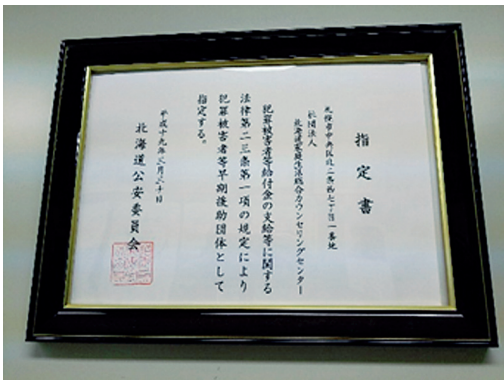 指定書
札幌市中央区北二条西七丁目一番地
社団法人
北海道家庭生活総合カウンセリングセンター
犯罪被害者等給付金の支給等に関する
法律第二三条第一項の規定により
犯罪被害者等早期援助団体として
指定する。
平成十九年三月三十日
北海道公安委員会